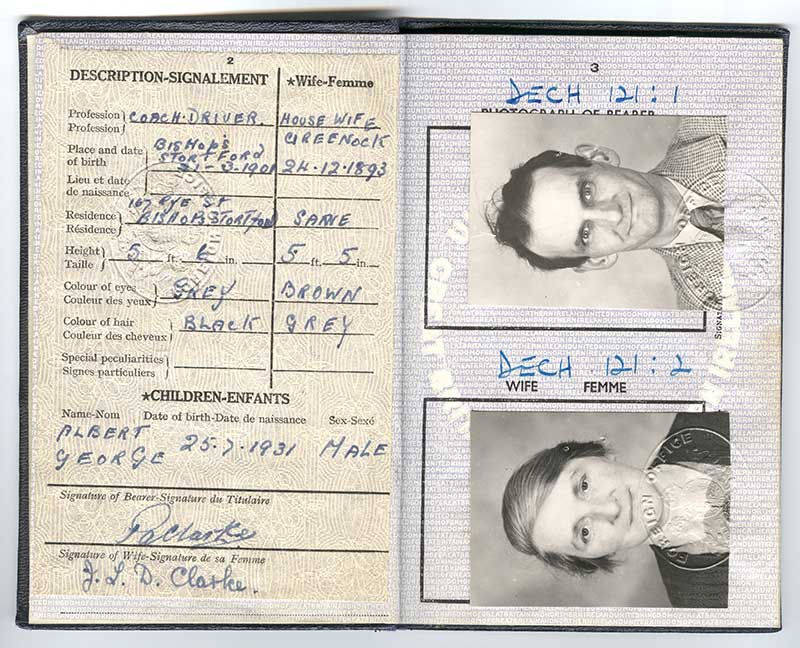 2
DESCRIPTION-SIGNALEMENT
★Wife-Femme
Profession
Profession
COACH-DRIVER.
HOUSE WIFE
Place and date
of birth
BISHOP'S
STORTFORD
21-3-1901
GREENOCK
24-12-1893
Lieu et date
de naissance
Residence
Résidence
167 RYE ST
BISHOPS STORTFORD
SAME
Height
Taille
5 ft. 6 in.
5 ft. 5 in.
Colour of eyes
Couleur des yeux
GREY
BROWN
Colour of hair
Couleur des cheveux
BLACK
GREY
Special peculiarities
Signes particuliers
★CHILDREN-ENFANTS
Name-Nom Date of birth-Date de naissance Sex-Sexé
ALBERT
GEORGE 25-7-1931 MALE
Signature of Bearer-Signature du Titulaire
Clarke
Signature of Wife-Signature de sa Femme
J. L. D. Clarke.
3
DECH 121:1
PHOTOGRAPH OF BEARER
DECH 121:2
WIFE FEMME
FOREIGN OFFICE